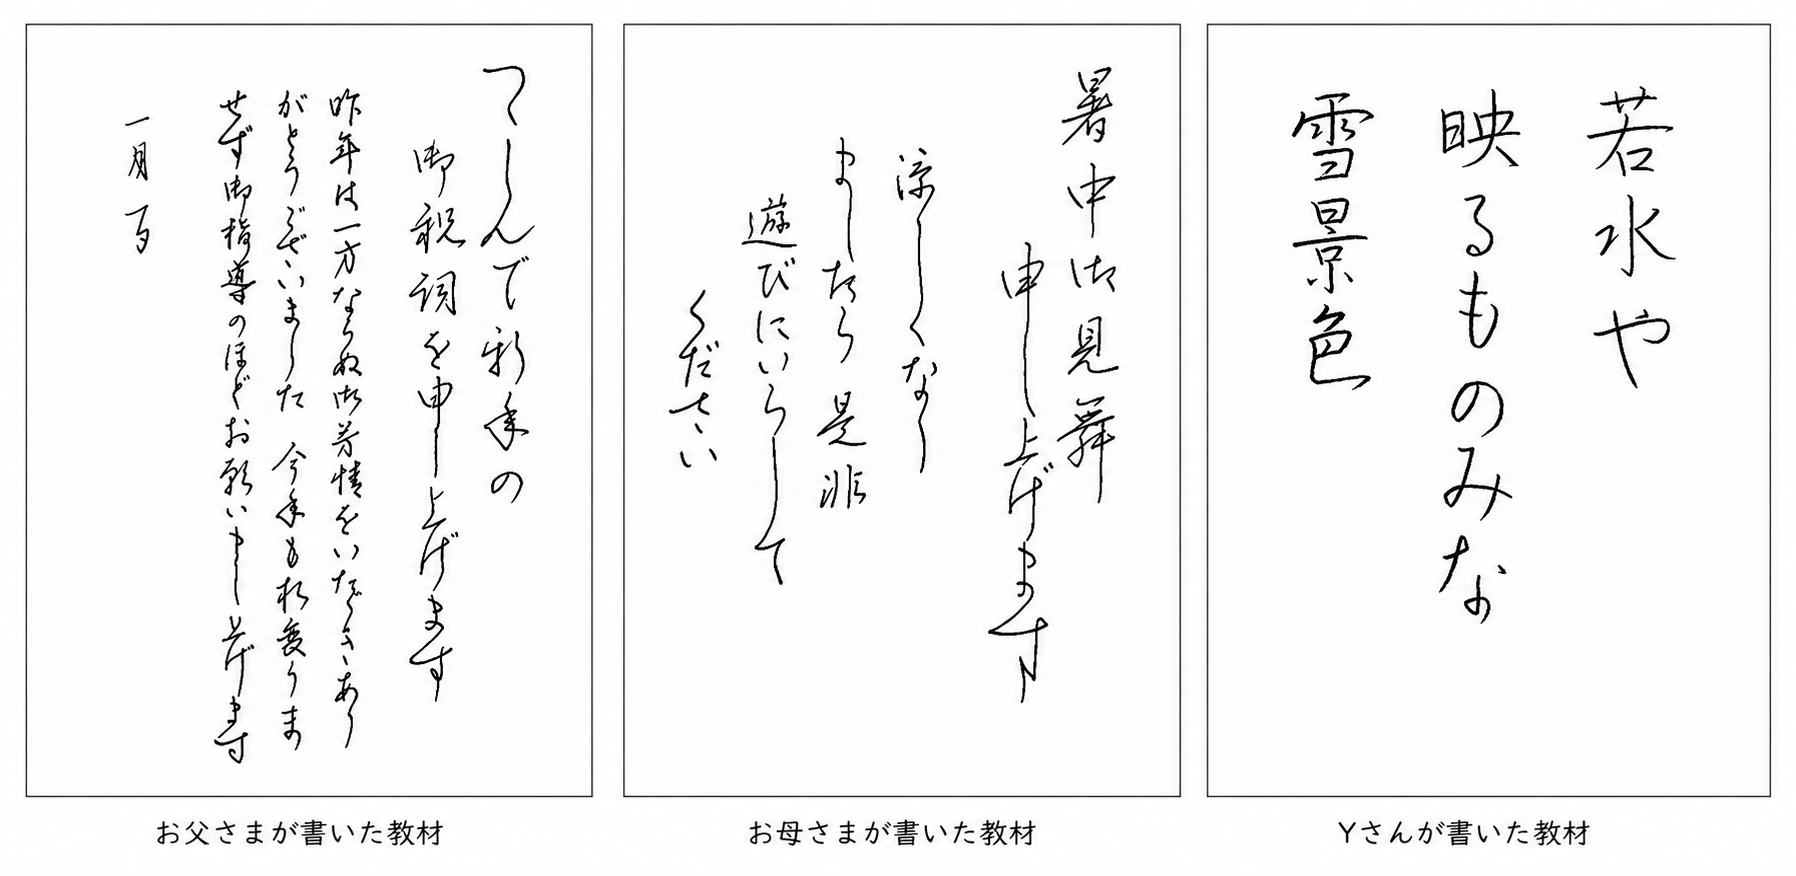 つゝしんで新年の
御祝詞を申し上げます
昨年は一方ならぬ御芳情をいただきあり
がとうございました 今年も相変りま
せず御指導のほどお願いまし上げます
一月一日
お父さまが書いた教材
暑中御見舞
申し上げます
涼しくなり
ましたら是非
遊びにいらして
ください
お母さまが書いた教材
若水や
映るものみな
雪景色
Yさんが書いた教材